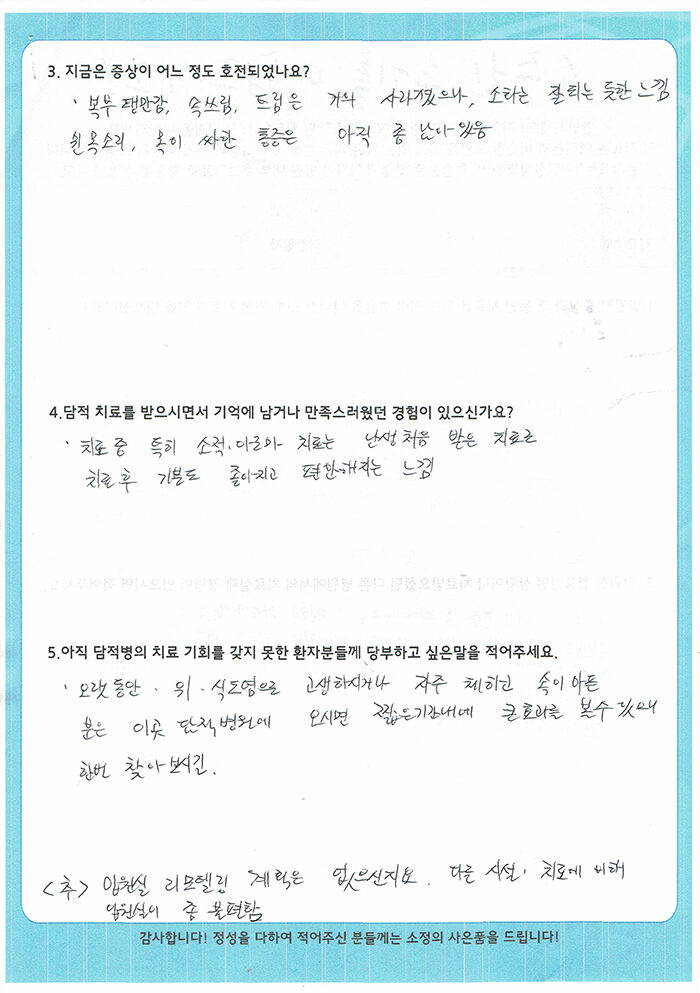 3. 지금은 증상이 어느 정도 호전되었나요?
· 복부 팽만감, 속쓰림, 트림은 거의 사라졌으나, 소화는 잘되는 듯한 느낌
쉰목소리, 목이 싸한 통증은 아직 좀 남아있음
4.담적 치료를 받으시면서 기억에 남거나 만족스러웠던 경험이 있으신가요?
· 치료 중 특히 소적·아로마 치료는 난생처음 받은 치료로
치료 후 기분도 좋아지고 편안해지는 느낌
5.아직 담적병의 치료 기회를 갖지 못한 환자분들께 당부하고 싶은말을 적어주세요.
· 오랫동안 · 위 · 식도염으로 고생하시거나 자주 체하신 속이 아픈
분은 이곳 담적병원에 오시면 짧은기간내에 큰효과를 볼수있으니
한번 찾아보시길.
<추> 입원실 리모델링 계획은 없으신지요. 다른 시설·치료에 비해
입원실이 좀 불편함
감사합니다! 정성을 다하여 적어주신 분들께는 소정의 사은품을 드립니다!